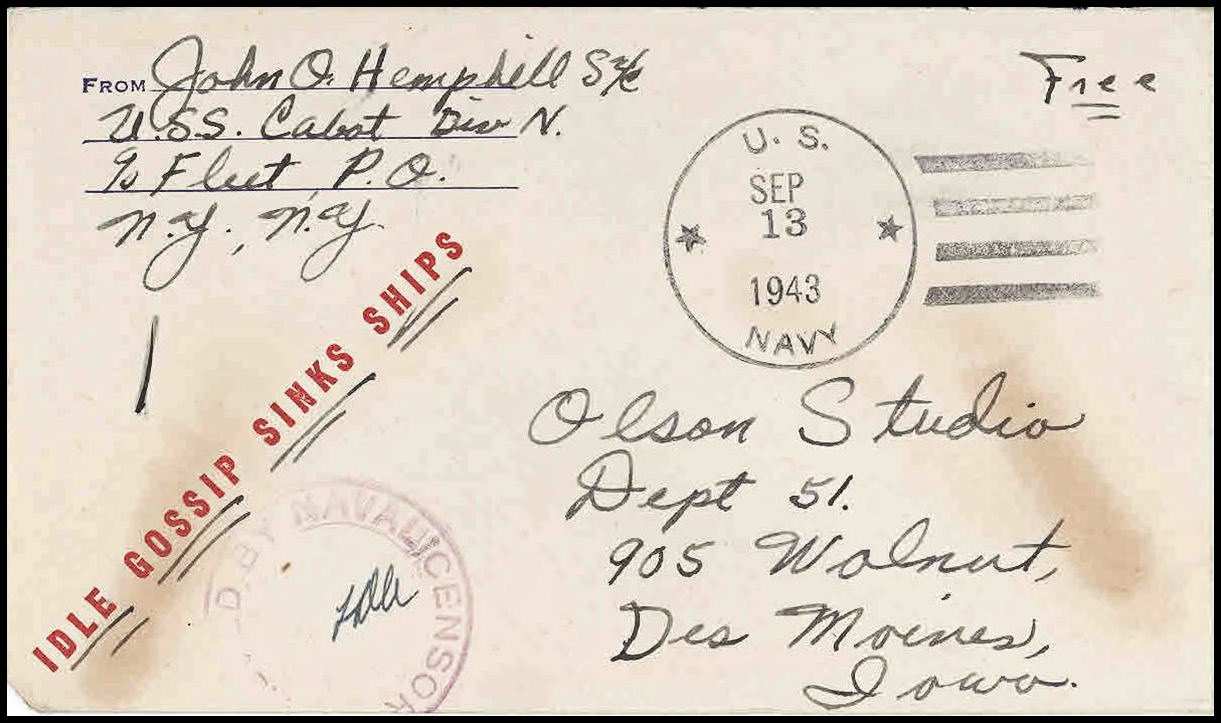 FROM John O. Hemphill S2/c
U.S.S. Cabot Div N.
c/o Fleet P.O.
N.Y., N.Y.
Free
U. S.
SEP
13
1943
NAVY
IDLE GOSSIP SINKS SHIPS
D BY NAVAL CENSOR
Olson Studio
Dept 51.
905 Walnut,
Des Moines,
Iowa.